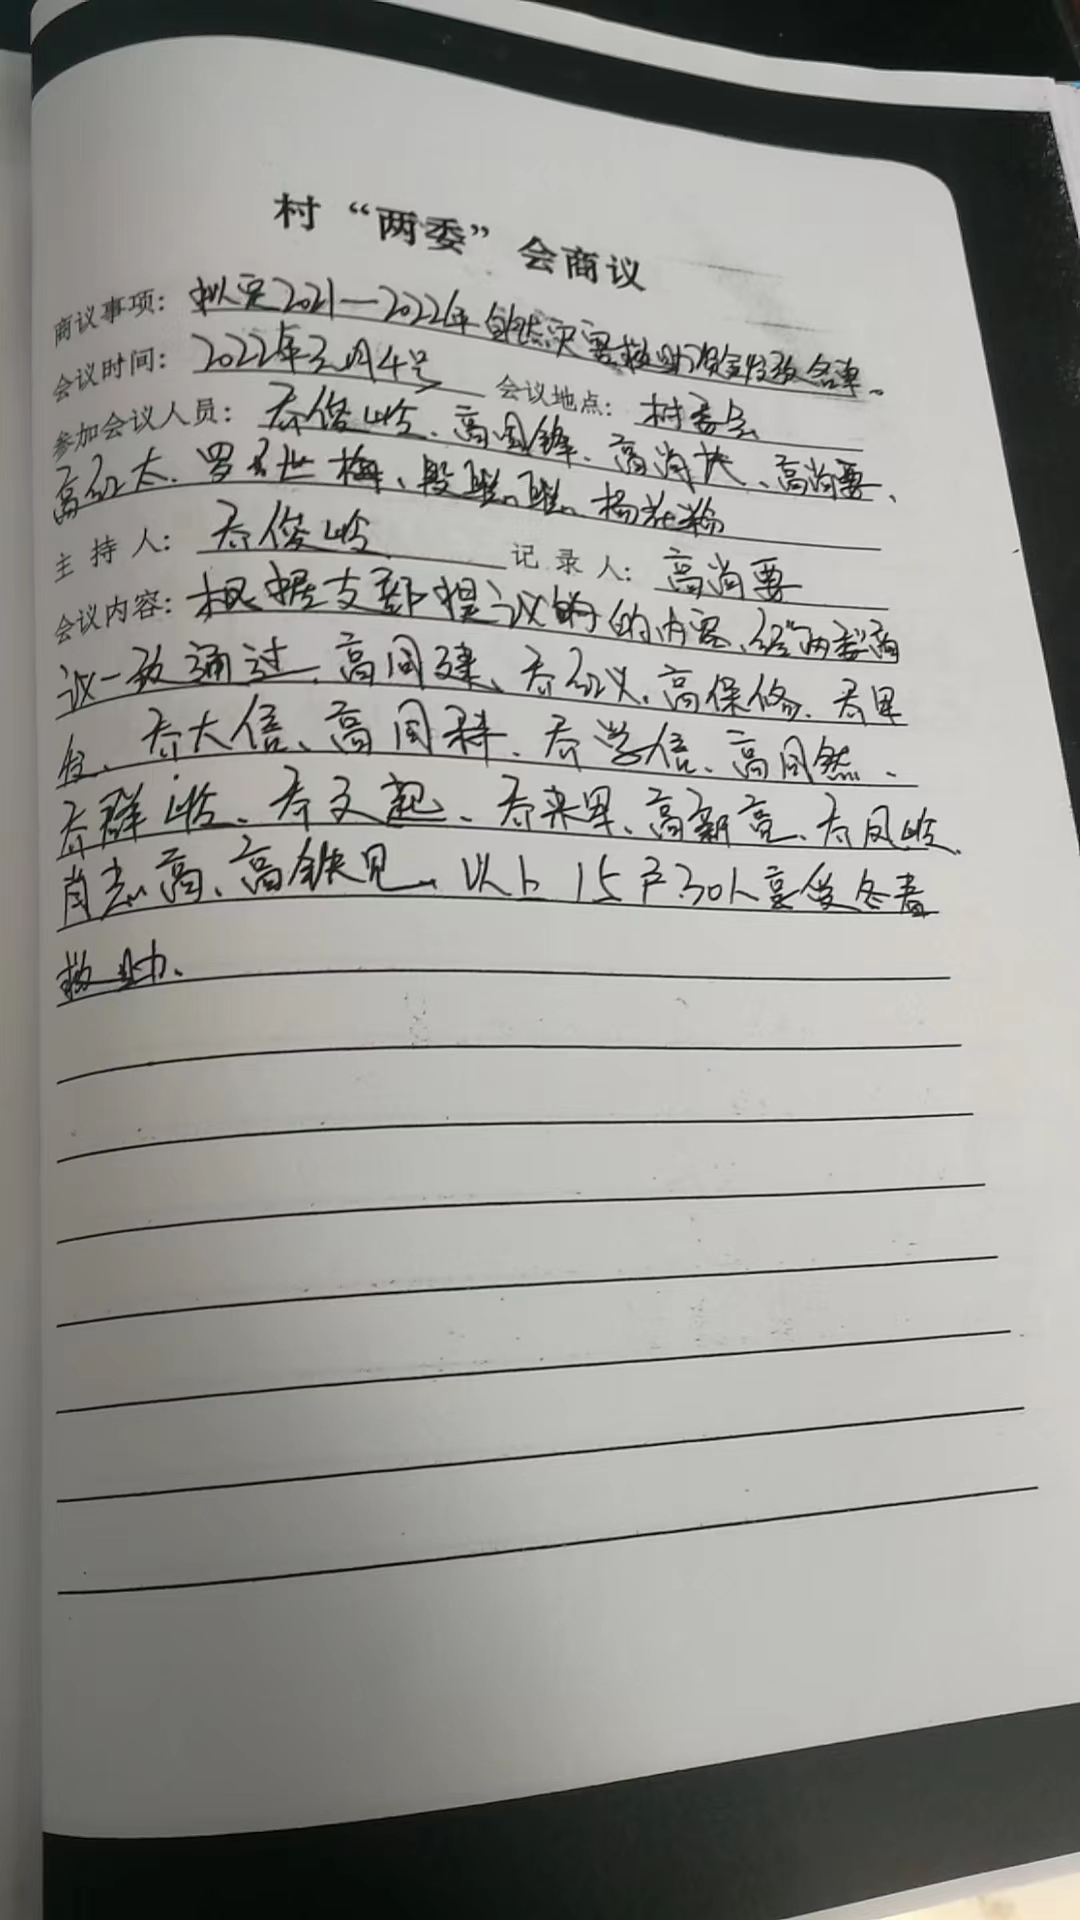 村“两委”会商议
商议事项：拟定2021—2022年自然灾害救助资金发放名单。
会议时间：2022年3月4号 会议地点：村委会
参加会议人员：乔俊岭、高国锋、高尚快、高尚要、
高红太、罗世梅、段联联、杨花粉
主持人：乔俊岭 记录人：高尚要
会议内容：根据支部提议的的内容、经“两委”商
议一致通过、高同建、乔红义、高保修、乔里
台、乔大信、高同科、乔学信、高同然、
乔群岭、乔文起、乔来军、高新亮、乔凤岭、
肖志高、高铁见、以上15户30人享受冬春
救助、